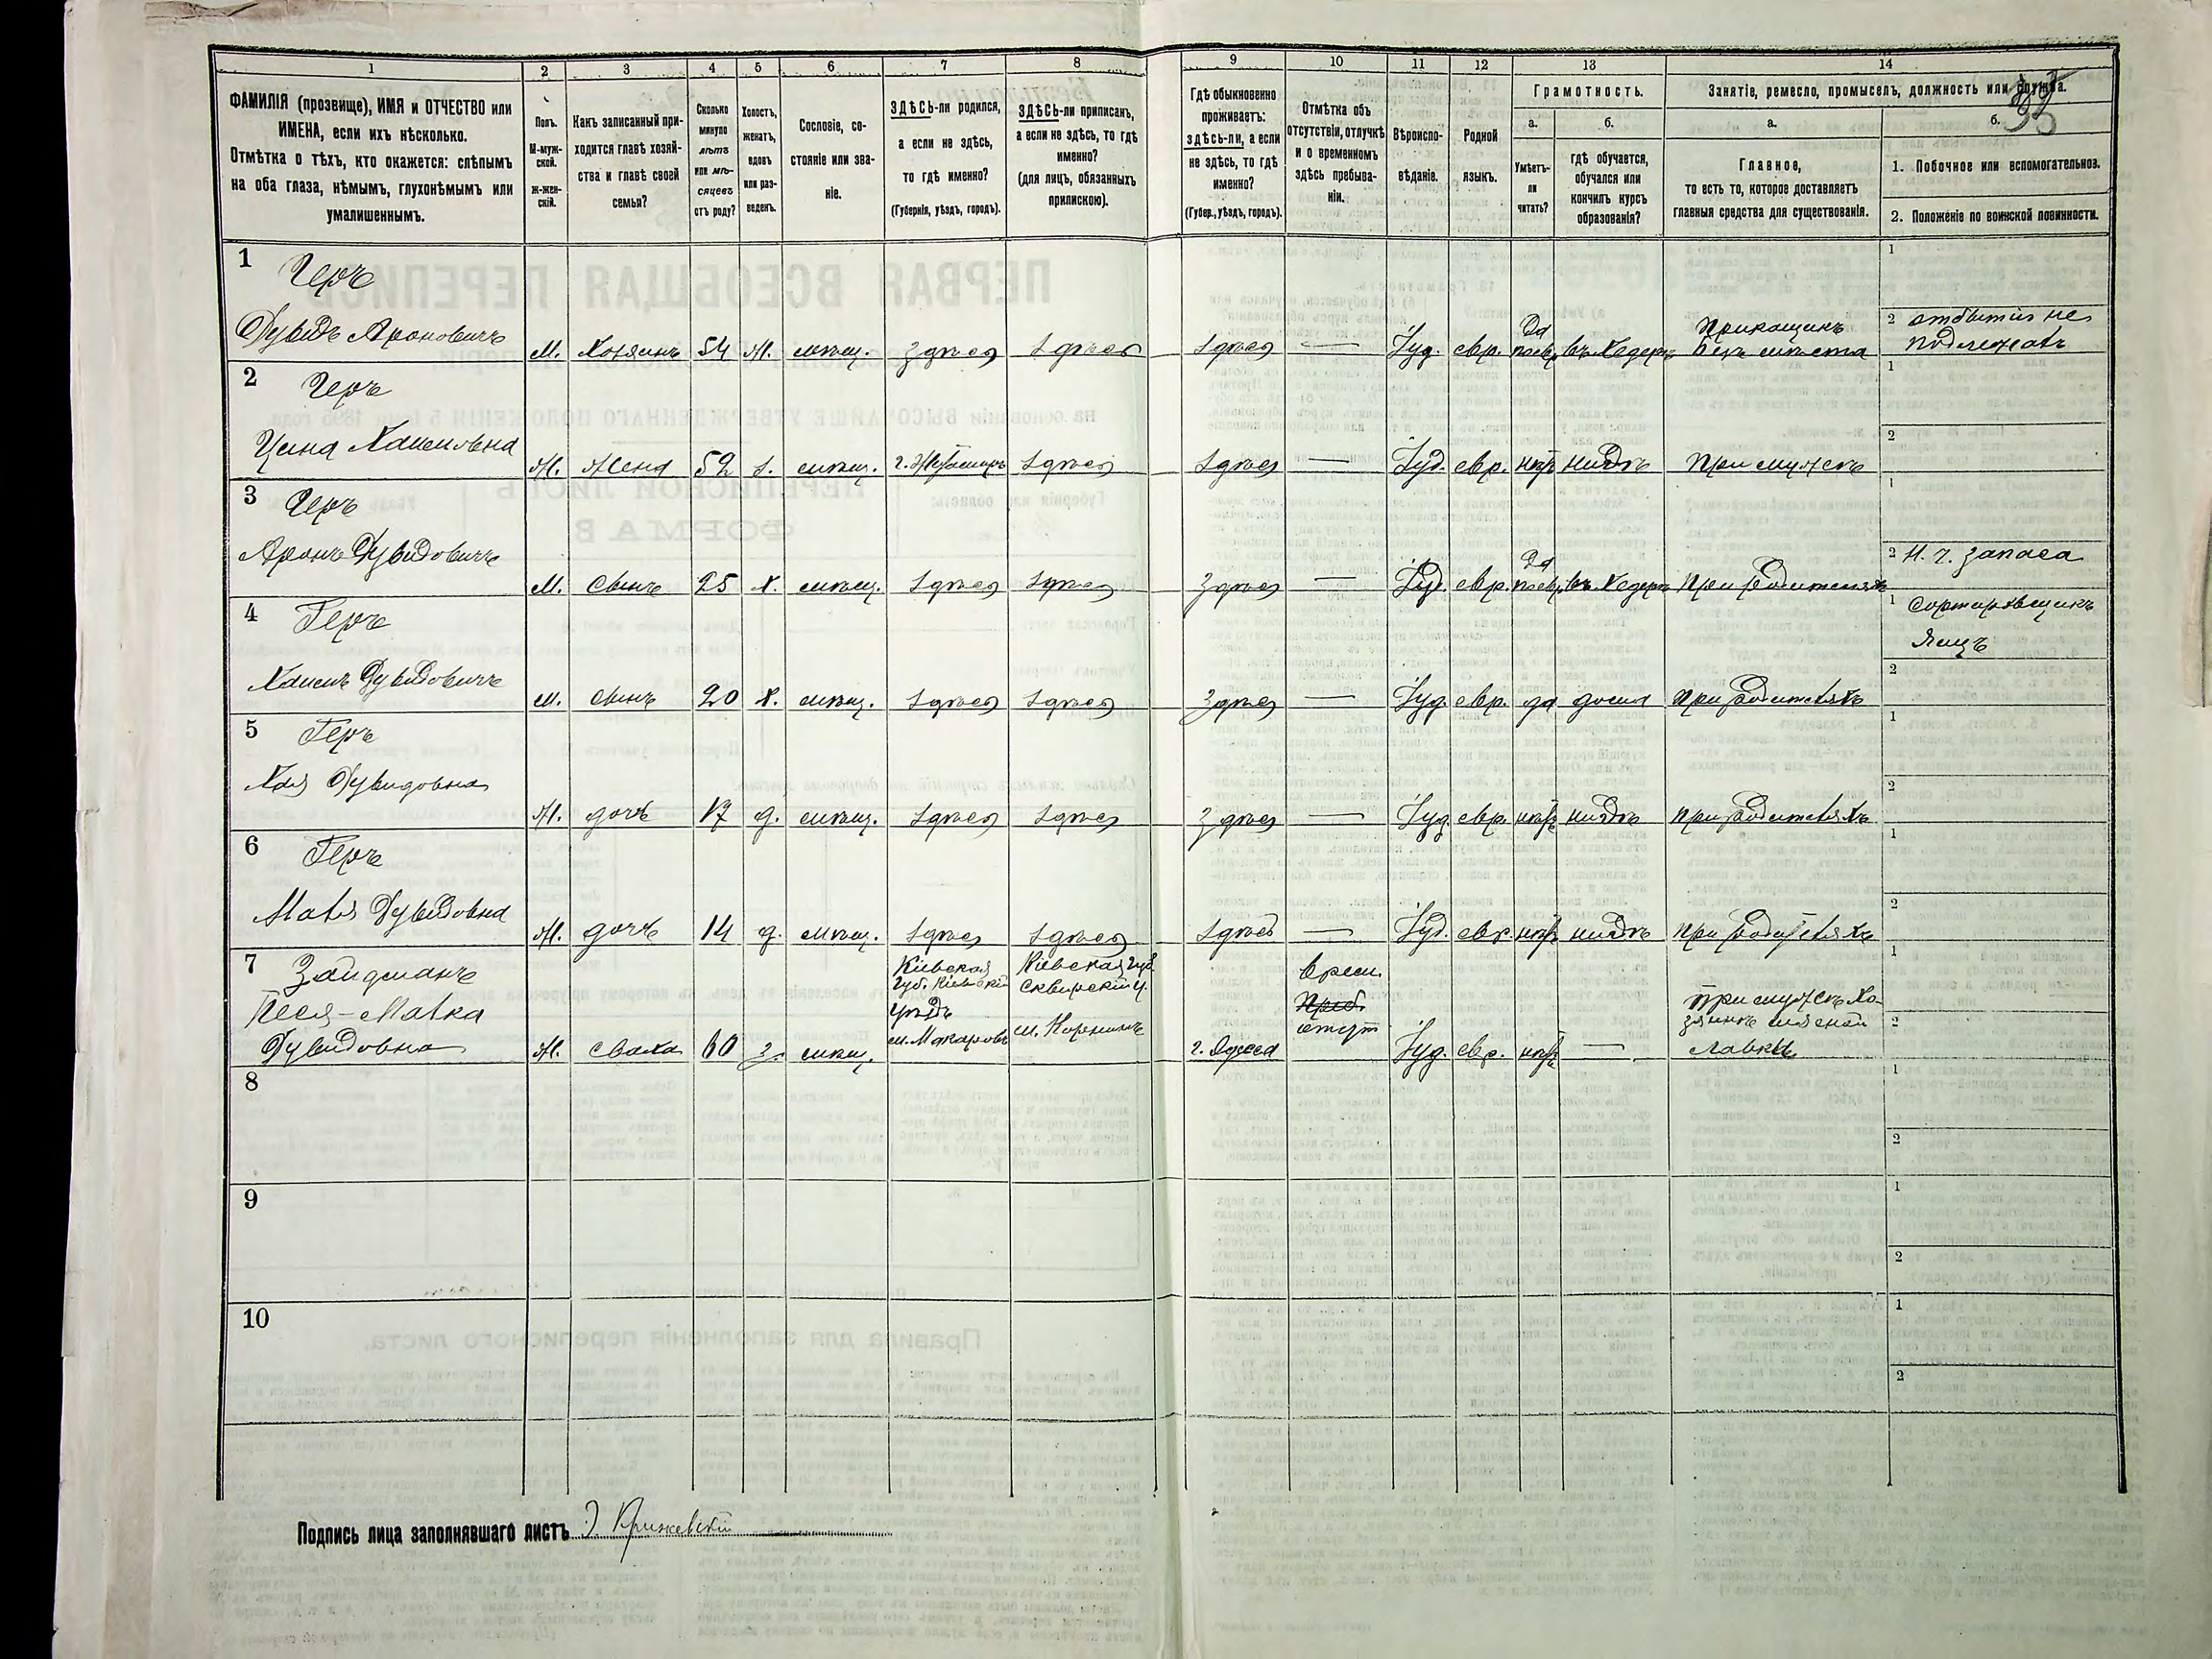 1 2 3 4 5 6 7 8 9 10 11 12 13 14
ФАМИЛІЯ (прозвище), ИМЯ и ОТЧЕСТВО или ИМЕНА, если ихъ нѣсколько.
Отмѣтка о тѣхъ, кто окажется: слѣпымъ на оба глаза, нѣмымъ, глухонѣмымъ или умалишеннымъ.
Полъ.
М-мужской.
ж-женскій.
Какъ записанный приходится главѣ хозяйства и главѣ своей семьи?
Сколько минуло лѣтъ или мѣсяцевъ отъ роду?
Холостъ, женатъ, вдовъ или разведенъ.
Сословіе, состояніе или званіе.
ЗДѢСЬ-ли родился, а если не здѣсь, то гдѣ именно?
(Губернія, уѣздъ, городъ).
ЗДѢСЬ-ли приписанъ, а если не здѣсь, то гдѣ именно?
(для лицъ, обязанныхъ припискою).
Гдѣ обыкновенно проживаетъ: здѣсь-ли, а если не здѣсь, то гдѣ именно?
(Губер., уѣздъ, городъ).
Отмѣтка объ отсутствіи, отлучкѣ и о временномъ здѣсь пребываніи.
Вѣроисповѣданіе.
Родной языкъ.
Грамотность.
а. Умѣетъ-ли читать?
б. гдѣ обучается, обучался или кончилъ курсъ образованія?
Занятіе, ремесло, промыселъ, должность или служба.
а. Главное, то есть то, которое доставляетъ главныя средства для существованія.
б.
1. Побочное или вспомогательное.
2. Положеніе по воинской повинности.
1 Геръ
Дувидъ Ароновичъ М. Хозяинъ 54 Ж. мѣщ. Здѣсь Здѣсь Здѣсь — Іуд. евр. Да по евр. въ Хедерѣ Прикащикъ безъ мѣста 1
2 отбытія не подлежатъ
2 Геръ
Цина Хаимовна Ж. Жена 52 з. мѣщ. Здѣсь Здѣсь — Іуд. евр. нѣтъ нигдѣ При мужѣ 1
2
3 Геръ
Аронъ Дувидовичъ М. Сынъ 25 х. мѣщ. Здѣсь Здѣсь Здѣсь — Іуд. евр. Да по евр. въ Хедерѣ При родителяхъ 1
2 Н. ч. запаса
4 Геръ
Хаимъ Дувидовичъ М. Сынъ 20 х. мѣщ. Здѣсь Здѣсь Здѣсь — Іуд. евр. да дома При родителяхъ 1 Сортировщикъ яицъ
2
5 Геръ
Хая Дувидовна Ж. дочь 17 д. мѣщ. Здѣсь Здѣсь Здѣсь — Іуд. евр. нѣтъ нигдѣ При родителяхъ 1
2
6 Геръ
Маля Дувидовна Ж. дочь 14 д. мѣщ. Здѣсь Здѣсь Здѣсь — Іуд. евр. нѣтъ нигдѣ При родителяхъ 1
2
7 Зайдманъ
Песя-Малка
Дувидовна Ж. сваха 60 з. мѣщ. Кіевская Губ. Кіевскій уѣздъ м. Макаровъ Кіевская Губ. Сквирскій у. м. Корнинъ г. Одесса врем. Преб. отсут Іуд. евр. нѣтъ — При мужѣ хозяинѣ мясной лавки 1
2
8 1
2
9 1
2
10 1
2
Подпись лица заполнявшаго листъ Э Крижевскій